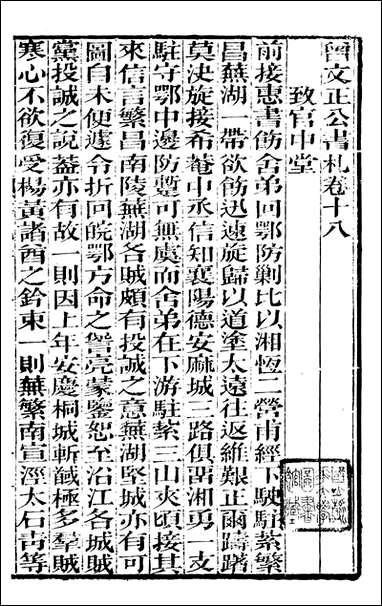 曾文正公書札卷十八
致官中堂
前接惠書飭舍弟回鄂防剿比以湘恆二營甫經下駛駐紮繁
昌蕪湖一帶欲飭迅速旋歸以道塗太遠往返維艱正爾躊躇
莫決旋接希菴中丞信知襄陽德安麻城三路俱留湘勇一支
駐守鄂中邊防暫可無虞而舍弟在下游駐紮三山夾頃接其
來信言繁昌南陵蕪湖各賊頗有投誠之意蕪湖堅城亦可可
圖自未便遽令折回皖鄂方命之咎亮蒙鑒恕至沿江各城賊
黨投誠之說蓋亦有故一則因上年安慶桐城斬馘極多羣賊
寒心不欲復受楊黃諸酋之鈐束一則蕪繁南宣涇太石青等